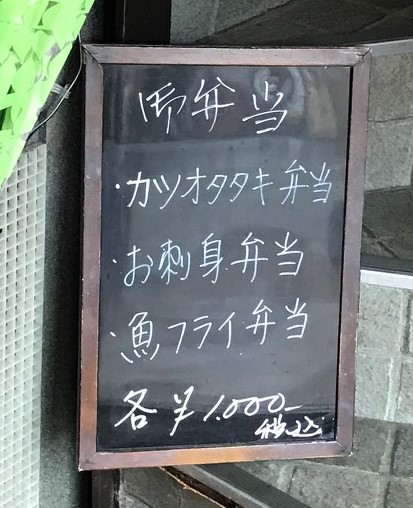 御弁当
・カツオタタキ弁当
・お刺身弁当
・魚フライ弁当
各¥1.000-
税込